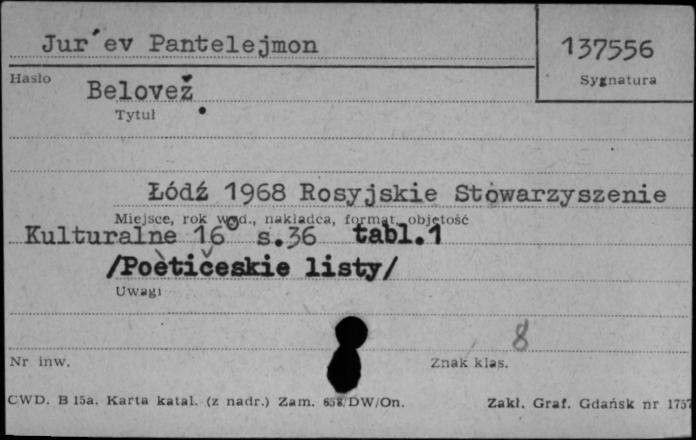 Jur´ev Pantelejmon
137556
Hasło
Sygnatura
Belovež
Tytuł
Łódź 1968 Rosyjskie Stowarzyszenie
Miejsce, rok wyd., nakładca, format, objętość
Kulturalne 16° s.36 tabl.1
/Poètičeskie listy/
Uwagi
8
Nr inw.
Znak klas.
CWD. B 15a. Karta katal. (z nadr.) Zam. 658/DW/On.
Zakł. Graf. Gdańsk nr 1757